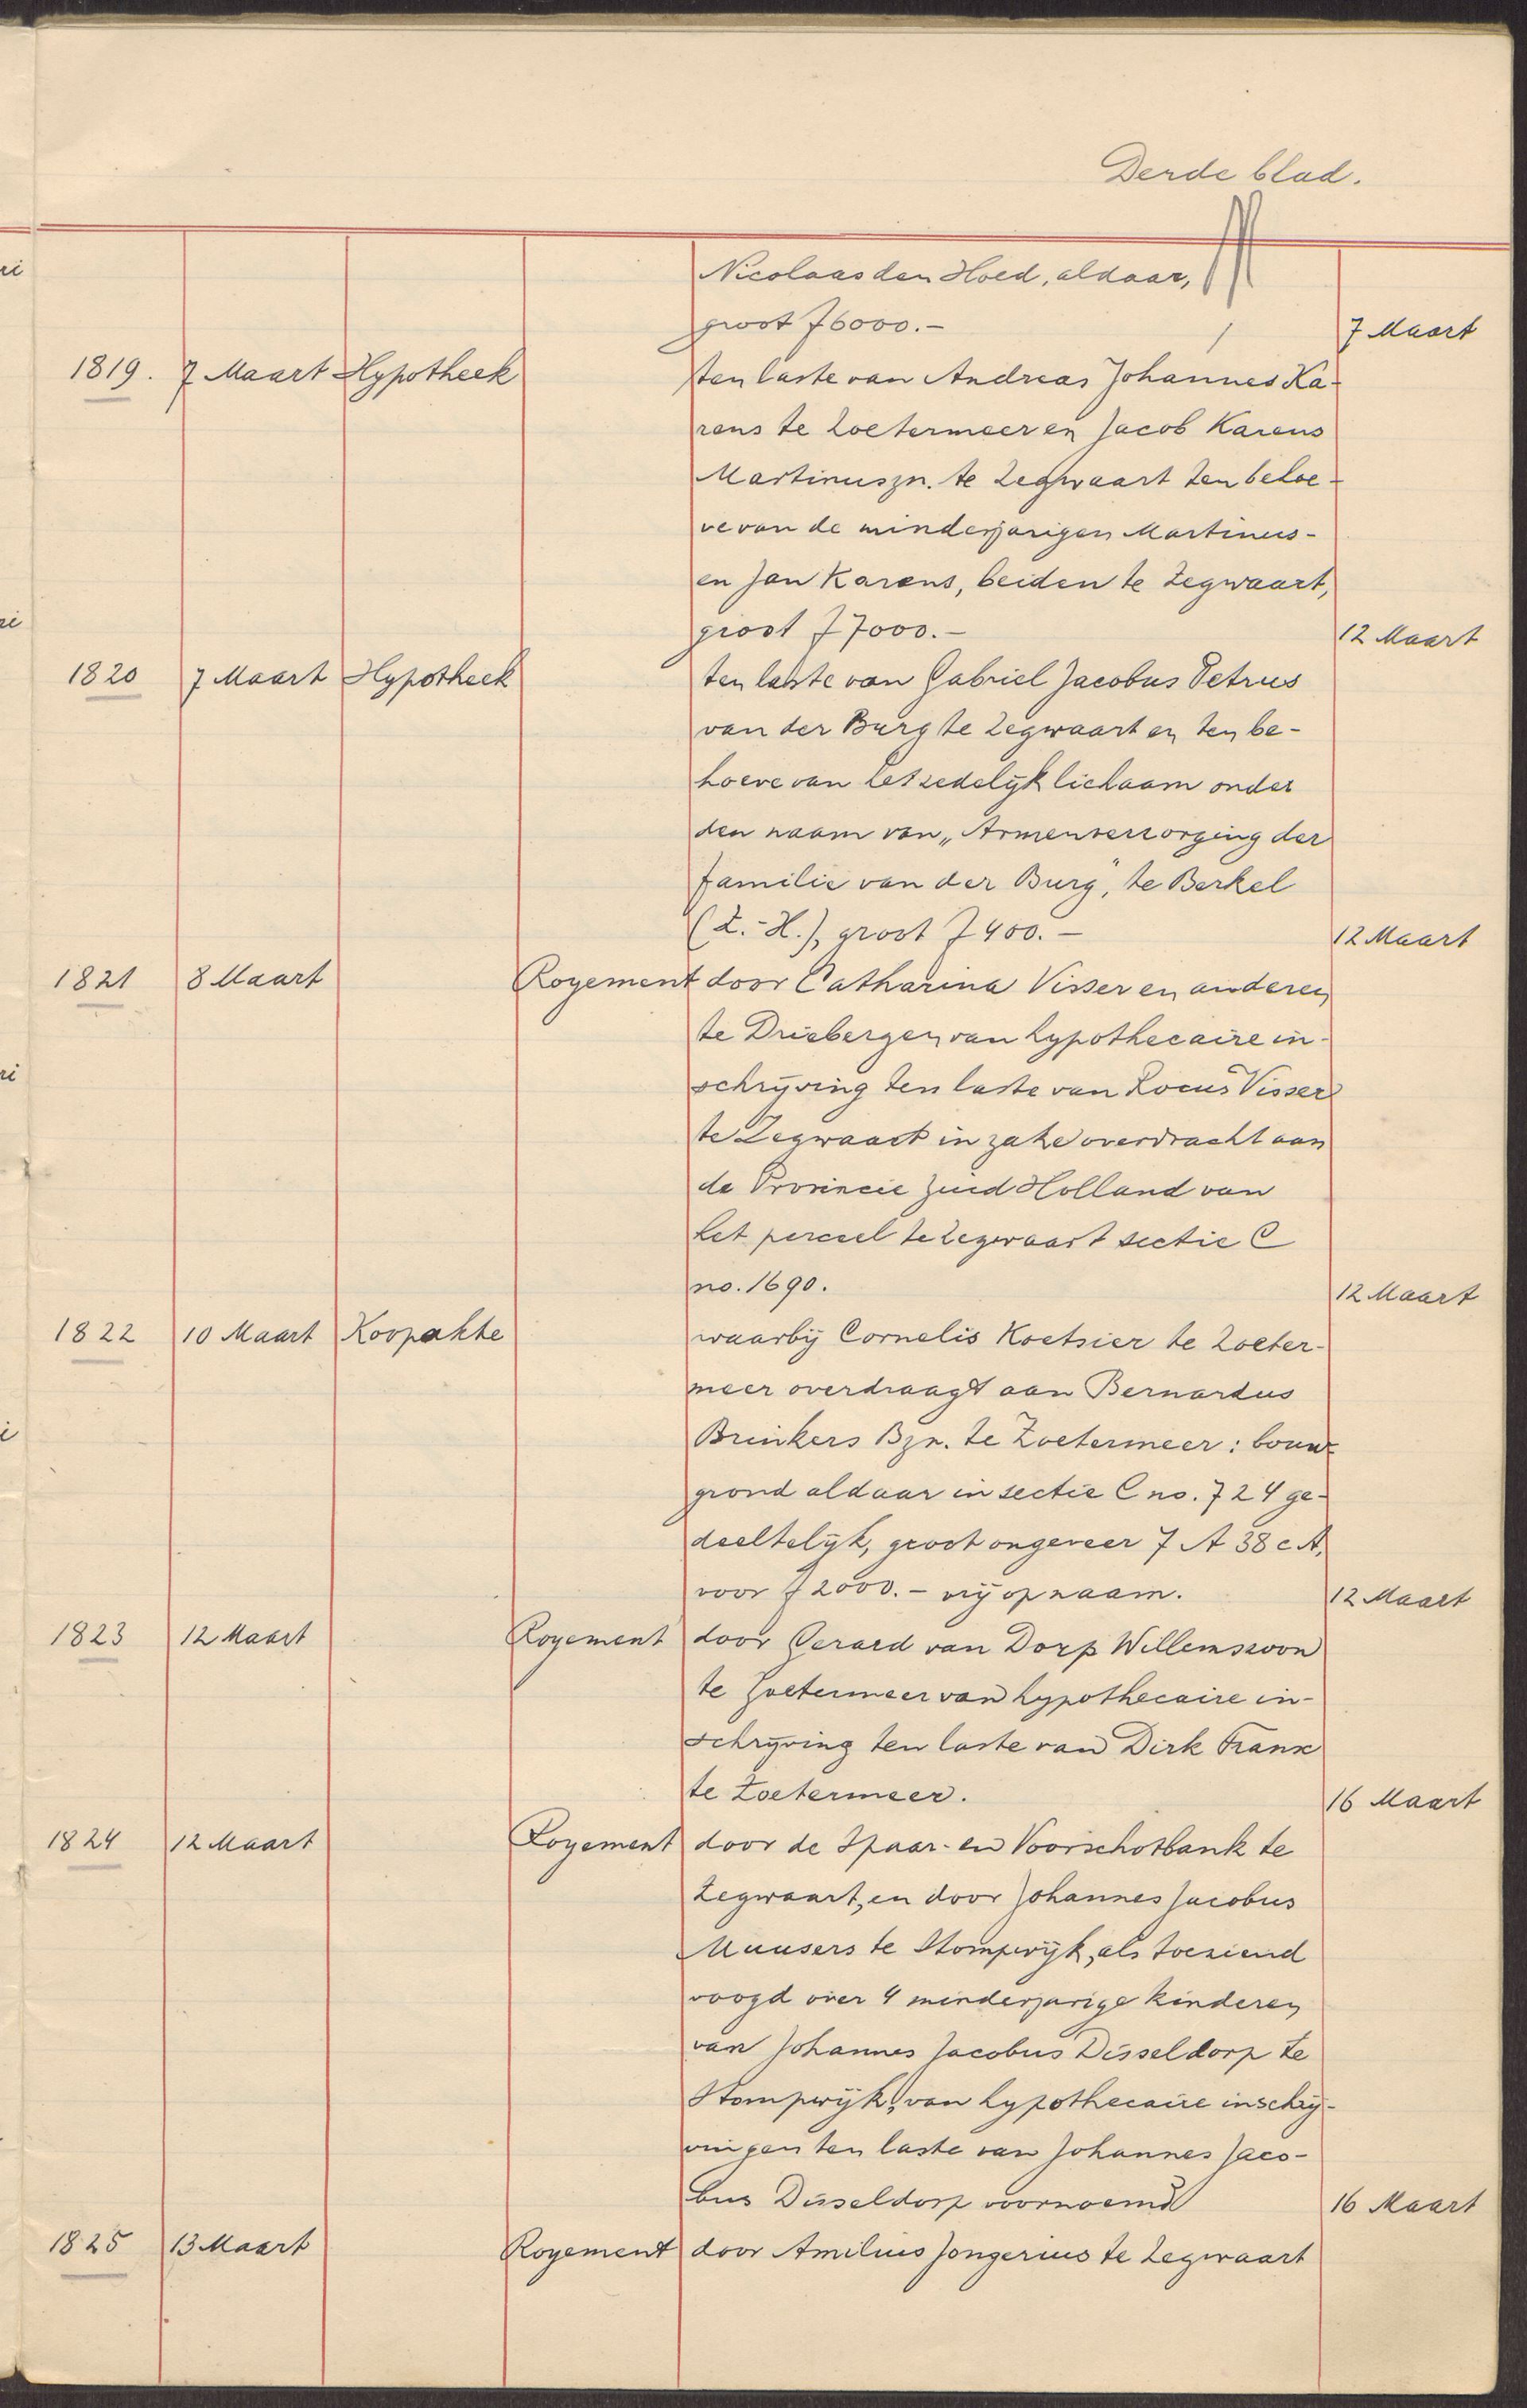 Derde blad.
Nicolaas den Hoed, aldaar,
groot f 6000.-
7 Maart
1819. 7 Maart Hypotheek ten laste van Andreas Johannes Ka-
rens te Zoetermeer en Jacob Karens
Martinuszn. te Zegwaart ten behoe-
ve van de minderjarigen Martinus-
en Jan Karens, beiden te Zegwaart,
groot f 7000.-
12 Maart
1820 7 Maart Hypotheek ten laste van Gabriel Jacobus Petrus
van der Burg te Zegwaart en ten be-
hoeve van het zedelijk lichaam onder
den naam van „Armenverzorging der
familie van der Burg", te Berkel
(Z.-H.), groot f 400.-
12 Maart
1821 8 Maart Royement door Catharina Visser en anderen
te Driebergen van hypothecaire in-
schrijving ten laste van Locus Visser
te Zegwaart in zake overdracht aan
de Provincie Zuid Holland van
het perceel te Zegwaart sectie C
no. 1690.
12 Maart
1822 10 Maart Koopakte waarbij Cornelis Koetsier te Zoeter-
meer overdraagt aan Bernardus
Brinkers Bzn. te Zoetermeer: bouw-
grond aldaar in sectie C no. 724 ge-
deeltelijk, groot ongeveer 7 A 38 cA,
voor f 2000.- vrij op naam.
12 Maart
1823 12 Maart Royement door Gerard van Dorp Willemszoon
te Zoetermeer van hypothecaire in-
schrijving ten laste van Dirk Frank
te Zoetermeer.
16 Maart
1824 12 Maart Royement door de Spaar- en Voorschotbank te
Zegwaart, en door Johannes Jacobus
Muusers te Stompwijk, als toeziend
voogd over 4 minderjarige kinderen
van Johannes Jacobus Disseldorp te
Stompwijk, van hypothecaire inschrij-
vingen ten laste van Johannes Jaco-
bus Disseldorp voornoemd
16 Maart
1825 13 Maart Royement door Amilius Jongerius te Zegwaart